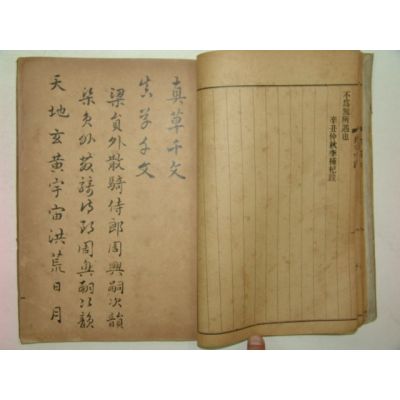 不爲無所遇也
辛丑仲秋李㮨紀跋
真草千文
真草千文
梁貟外散騎侍郎周興嗣次韻
梁貟外散騎侍郎周興嗣次韻
天地玄黃宇宙洪荒日月